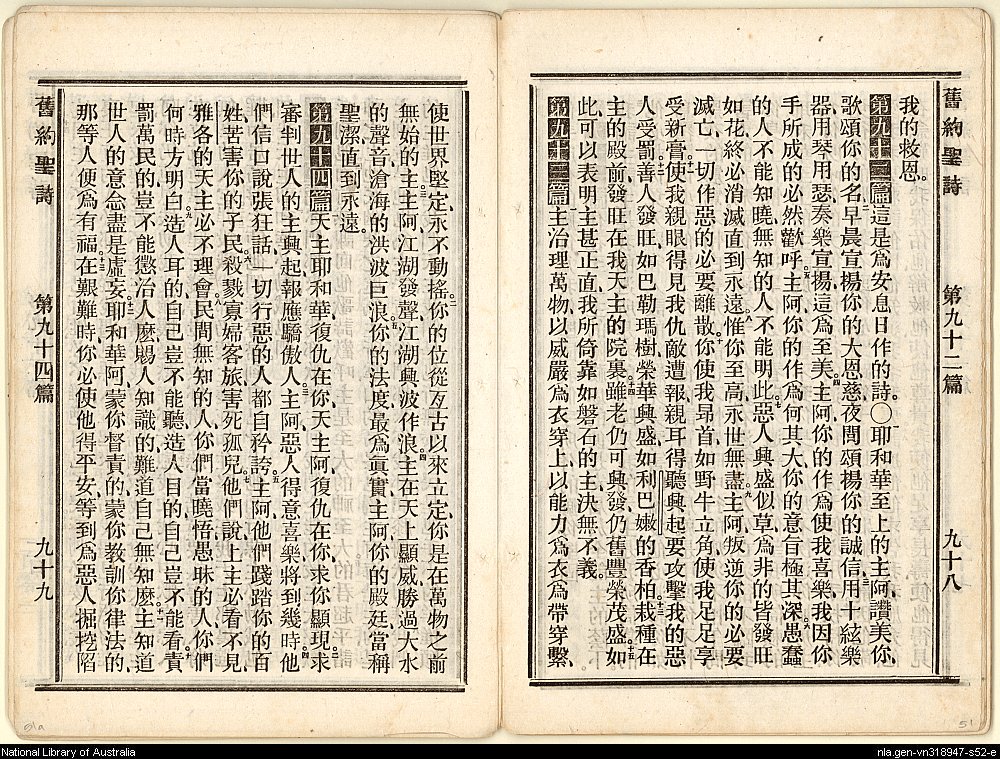 舊約聖詩 第九十二篇 九十八
我的救恩。
第九十二篇這是爲安息日作的詩。〇耶和華至上的主阿、讚美你、
歌頌你的名、早晨宣揚你的大恩慈、夜間頌揚你的誠信、用十絃樂
器、用琴用瑟、奏樂宣揚、這爲至美、主阿、你的作爲使我喜樂、我因你
手所成的必然歡呼、主阿、你的作爲何其大、你的意旨極其深、愚蠢
的人不能知曉、無知的人不能明此、惡人興盛似草、爲非的皆發旺
如花、終必消滅直到永遠、惟你至高、永世無盡、主阿、叛逆你的必要
滅亡、一切作惡的必要離散、你使我昂首如野牛立角、使我足足享
受新膏、使我親眼得見我仇敵遭報、親耳得聽興起要攻擊我的惡
人受罰、善人發旺如巴勒瑪樹、榮華興盛如利巴嫩的香柏、栽種在
主的殿前、發旺在我天主的院裏、雖老仍可興發、仍舊豐榮茂盛、如
此可以表明主甚正直、我所倚靠如磐石的主、決無不義。
第九十三篇主治理萬物、以威嚴爲衣穿上、以能力爲衣爲帶穿繫、
舊約聖詩 第九十四篇 九十九
使世界堅定、永不動搖、你的位從亙古以來立定、你是在萬物之前
無始的主、主阿、江湖發聲、江湖興波作浪、主在天上顯威、勝過大水
的聲音、滄海的洪波巨浪、你的法度最爲眞實、主阿、你的殿廷當稱
聖潔、直到永遠。
第九十四篇天主耶和華、復仇在你、天主阿、復仇在你、求你顯現、求
審判世人的主興起、報應驕傲人、主阿、惡人得意喜樂、將到幾時、他
們信口說張狂話、一切行惡的人都自矜誇、主阿、他們踐踏你的百
姓、苦害你的子民、殺戮寡婦客旅、害死孤兒、他們說、上主必看不見、
雅各的天主必不理會、民間無知的人、你們當曉悟、愚昧的人、你們
何時方明白、造人耳的、自己豈不能聽、造人目的、自己豈不能看、責
罰萬民的、豈不能懲治人麼、賜人知識的、難道自己無知麼、主知道
世人的意念、盡是虛妄、耶和華阿、蒙你督責的、蒙你教訓你律法的、
那等人便爲有福、在艱難時、你必使他得平安、等到爲惡人掘挖陷
51a
51
National Library of Australia
nla.gen-vn318947-s52-e